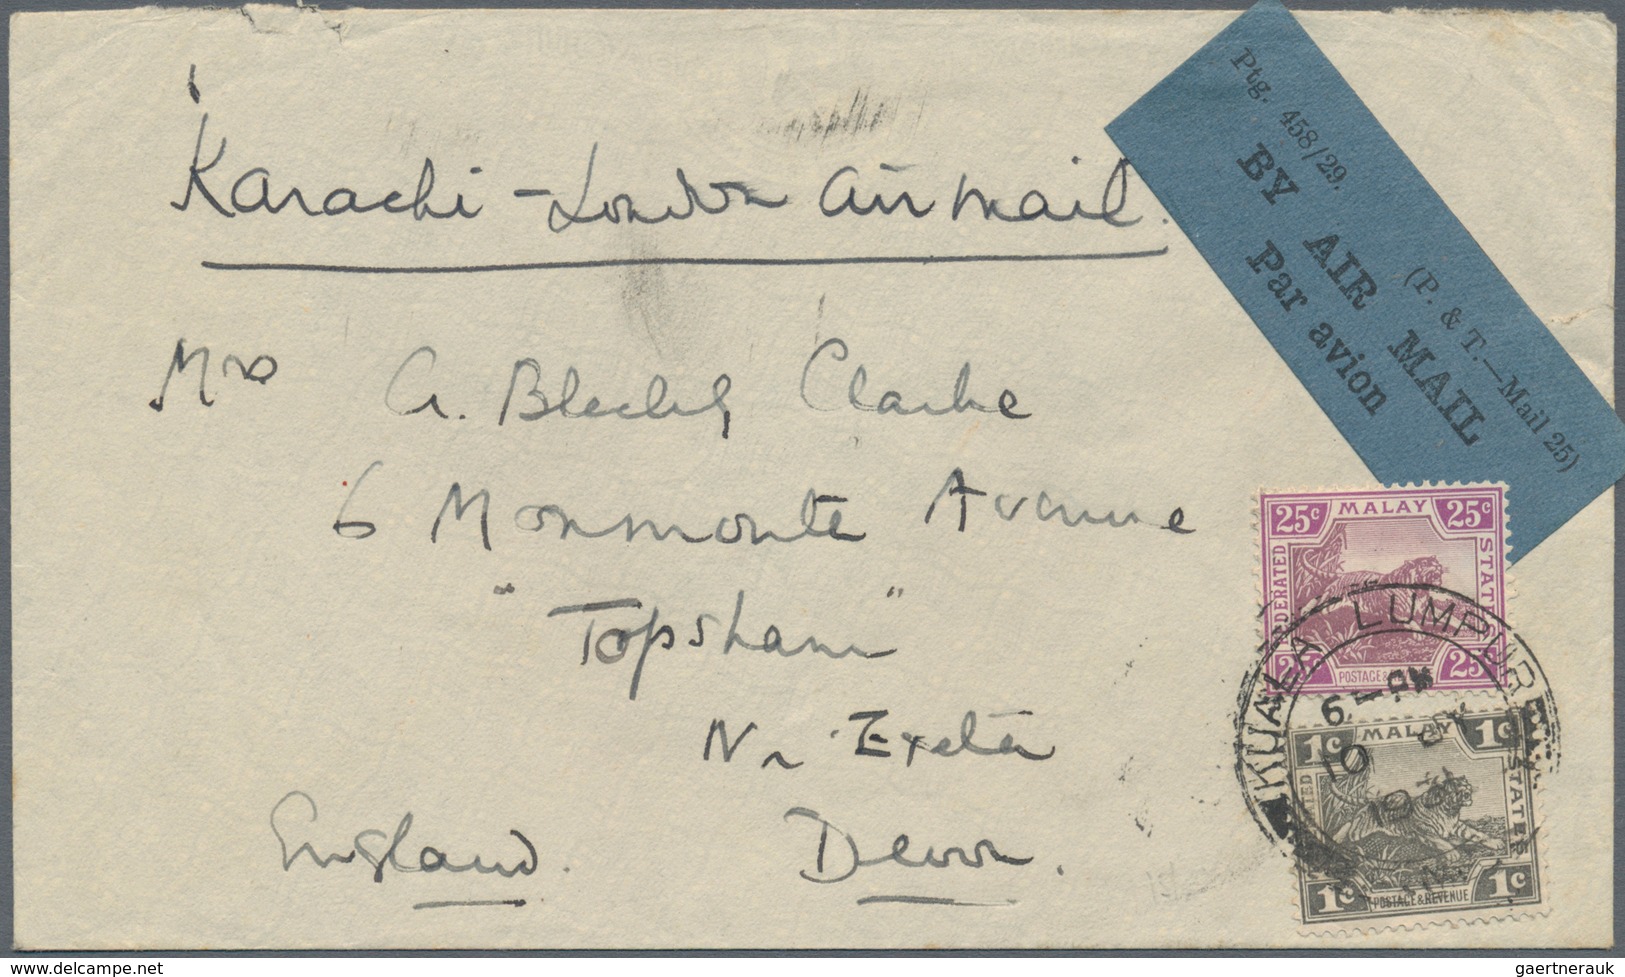 Karachi - London air mail.
Mrs A. Clarke
6 Monmonte Avenue
"Topsham"
Nr Exeter
England. Devon.
Ptg. 458/29. (P. & T.—Mail 25)
BY AIR MAIL
Par avion
25c MALAY 25c
FEDERATED STATES
25c POSTAGE & 25
KUALA LUMPUR
6 - PM
10
19
1c MALAY 1c
STATES
1c POSTAGE & REVENUE 1c
www.delcampe.net
gaertnerauk